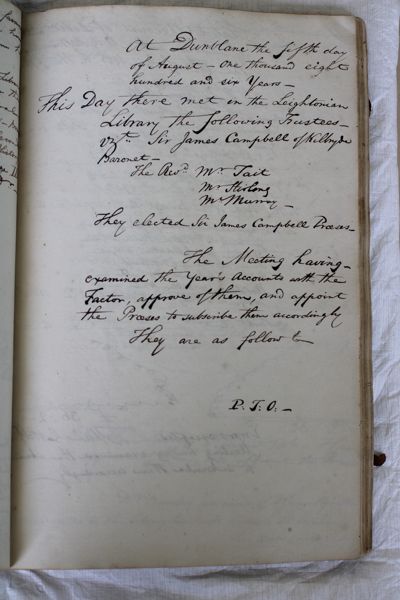 At Dunblane the fifth day
of August - One thousand eight
hundred and six Years -
This Day there met in the Leightonian
Library the following Trustees -
vizt. Sir James Campbell of Kilbryde
Baronet -
The Revd. Mr Tait
Mr Stirling
Mr Murray -
They elected Sir James Campbell Præses -
The Meeting having -
examined the Year's Accounts with the
Factor, approve of them, and appoint
the Præses to subscribe them accordingly
They are as follow to
P. T. O. -